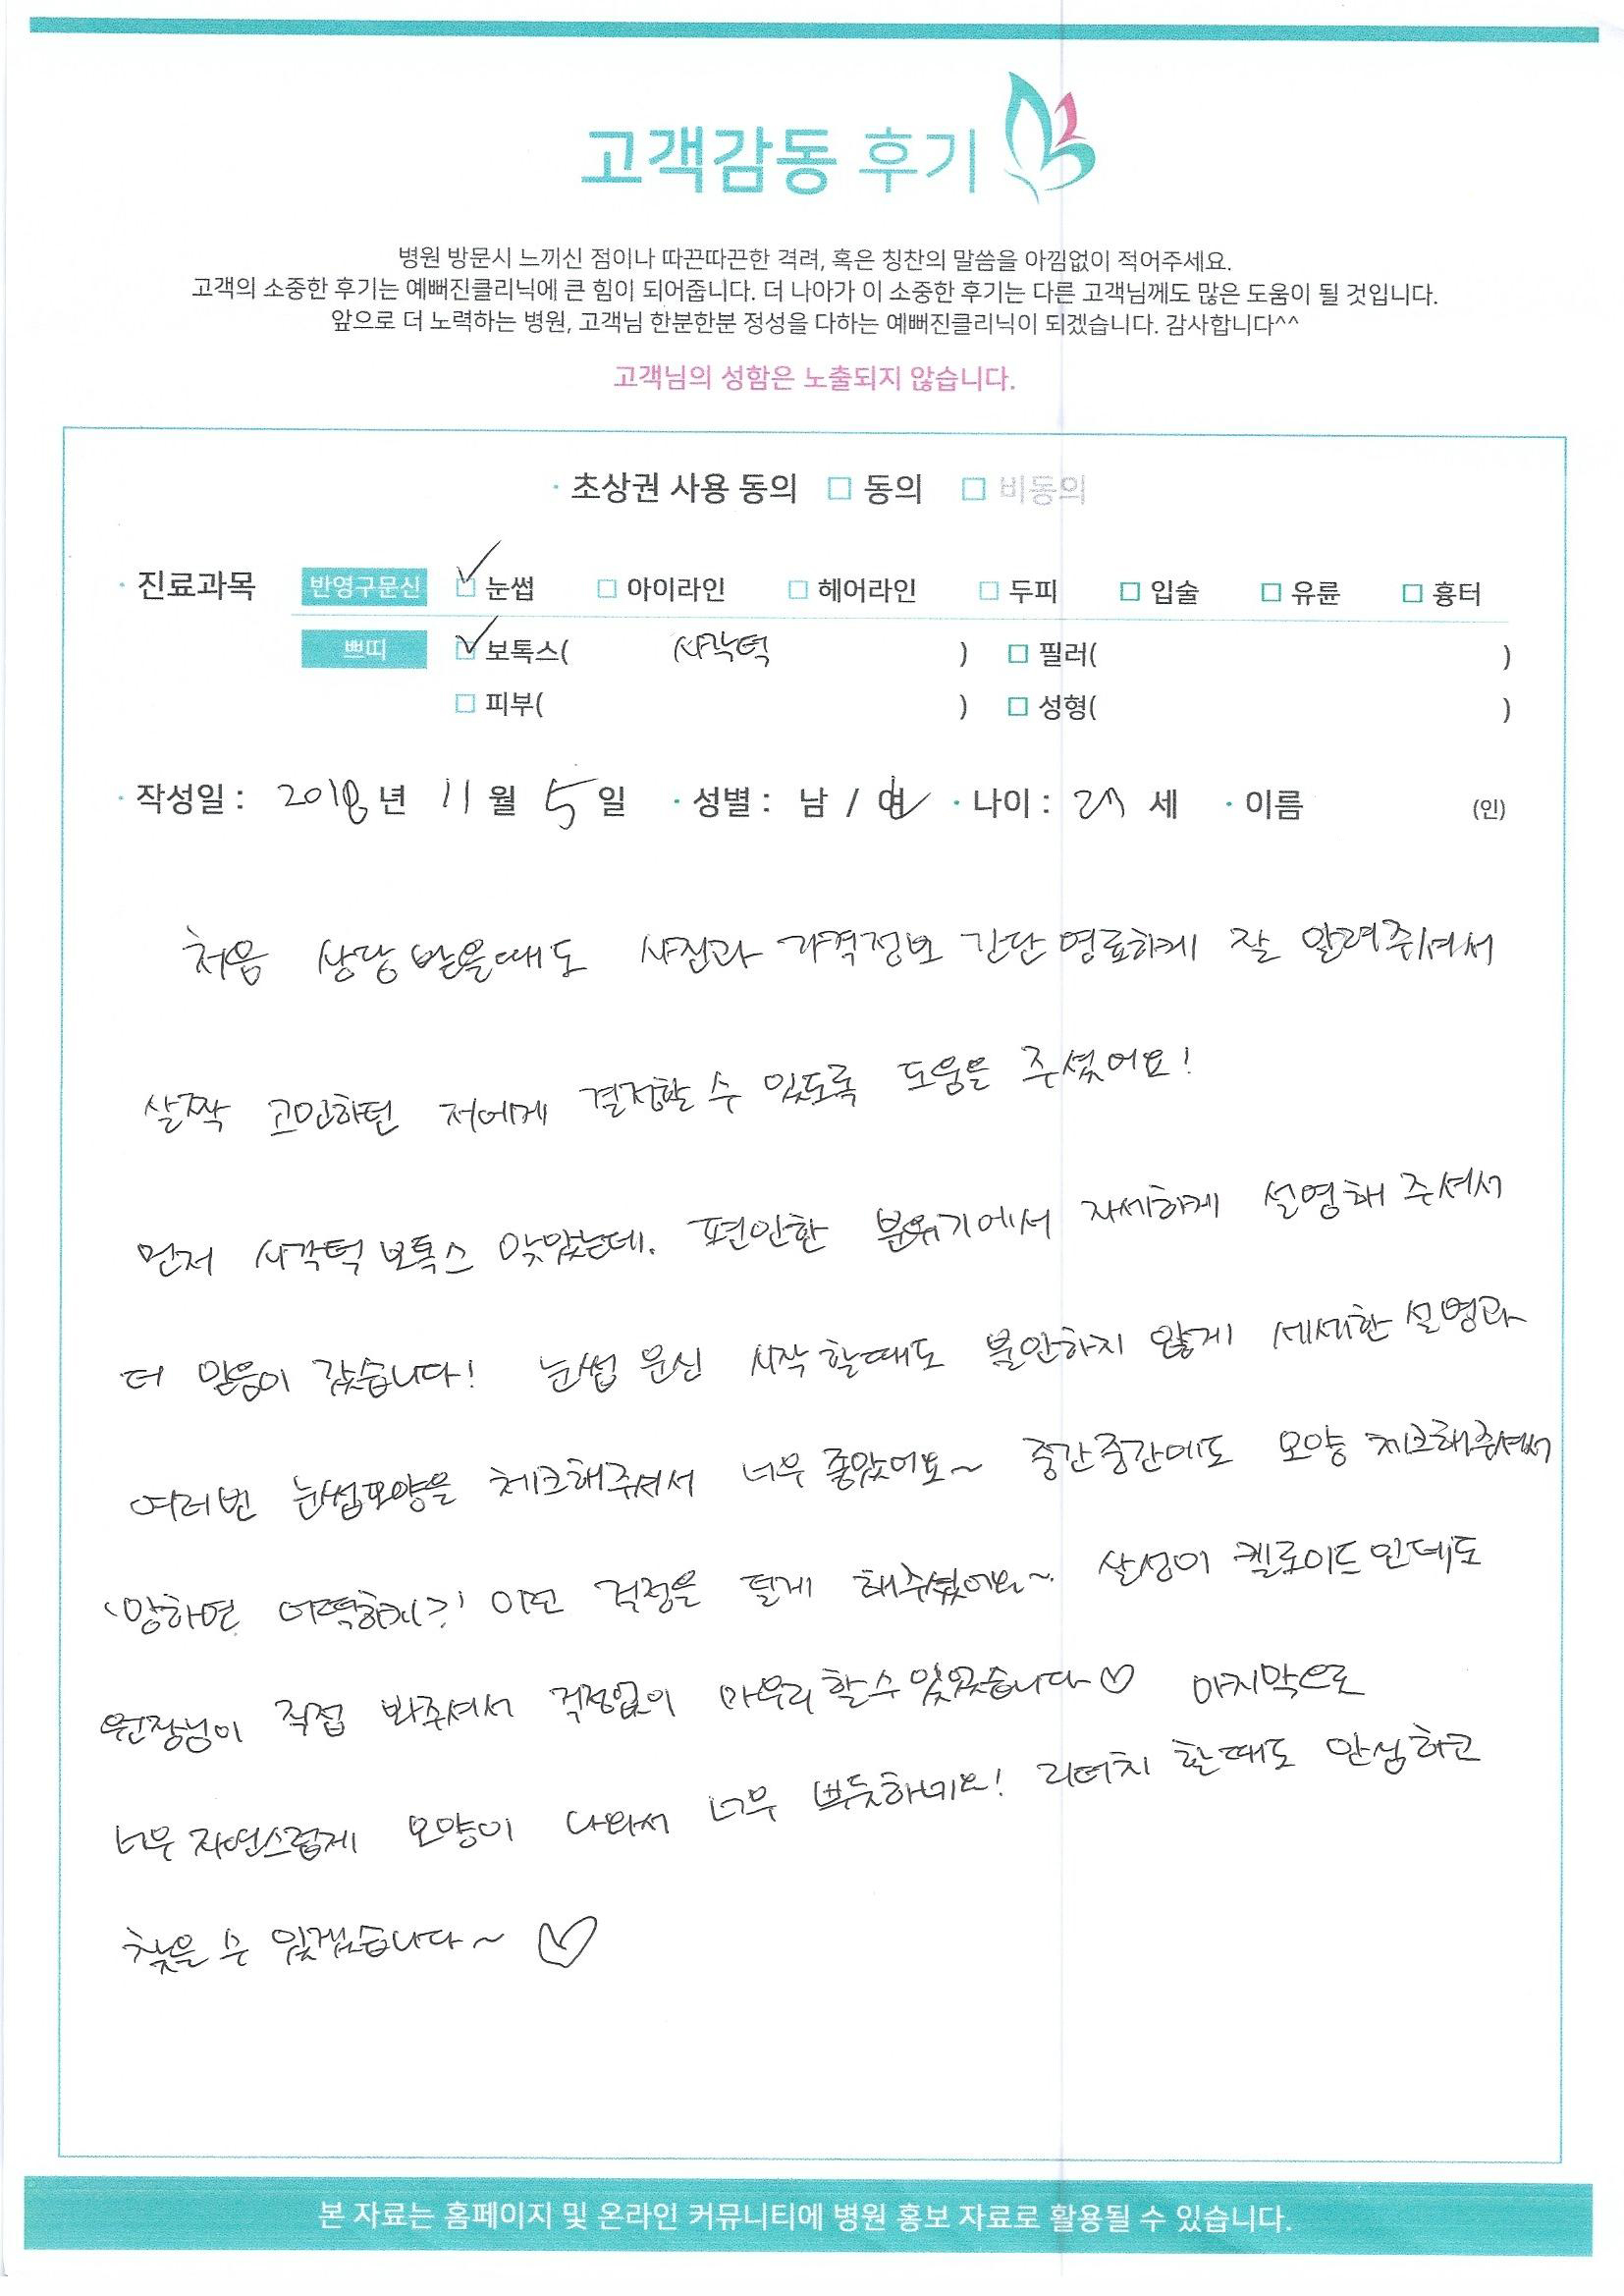 고객감동 후기
병원 방문시 느끼신 점이나 따끈따끈한 격려, 혹은 칭찬의 말씀을 아낌없이 적어주세요.
고객의 소중한 후기는 예뻐진클리닉에 큰 힘이 되어줍니다. 더 나아가 이 소중한 후기는 다른 고객님께도 많은 도움이 될 것입니다.
앞으로 더 노력하는 병원, 고객님 한분한분 정성을 다하는 예뻐진클리닉이 되겠습니다. 감사합니다^^
고객님의 성함은 노출되지 않습니다.
· 초상권 사용 동의 □ 동의 □ 비동의
· 진료과목 반영구문신 ☑ 눈썹 □ 아이라인 □ 헤어라인 □ 두피 □ 입술 □ 유륜 □ 흉터
쁘띠 ☑ 보톡스( 사각턱 ) □ 필러( )
□ 피부( ) □ 성형( )
· 작성일 : 2018년 11월 5일 · 성별 : 남 / 여 · 나이 : 27 세 · 이름 (인)
처음 상담 받을때도 사진과 가격정보 간단명료하게 잘 알려주셔서
살짝 고민하던 저에게 결정할 수 있도록 도움을 주셨어요!
먼저 사각턱 보톡스 맞았는데. 편안한 분위기에서 자세하게 설명해 주셔서
더 믿음이 갔습니다! 눈썹 문신 시작 할때도 불안하지 않게 세세한 설명과
여러번 눈썹모양을 체크해주셔서 너무 좋았어요~ 중간중간에도 모양 체크해주셔서
'망하면 어떡하지?' 이런 걱정을 덜게 해주셨어요~ 살성이 켈로이드인데도
원장님이 직접 봐주셔서 걱정없이 마무리 할수 있었습니다♡ 마지막으로
너무 자연스럽게 모양이 나와서 너무 뿌듯하네요! 리터치 할때도 안심하고
찾을 수 있겠습니다~ ♡
본 자료는 홈페이지 및 온라인 커뮤니티에 병원 홍보 자료로 활용될 수 있습니다.